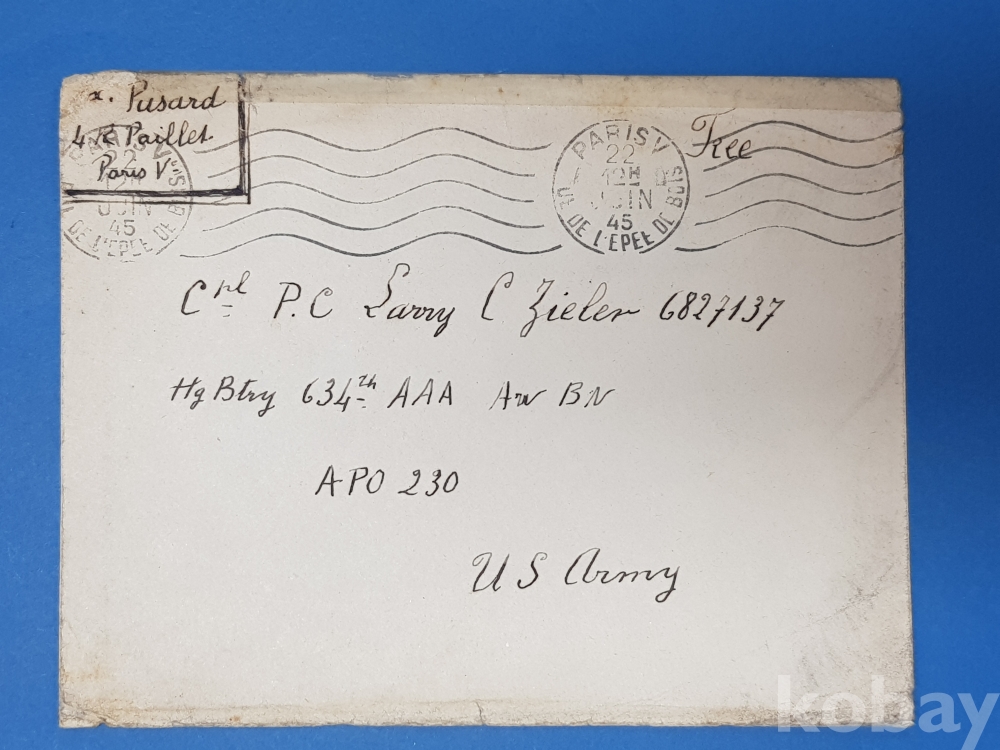 x. Pusard
4 R Paillet
Paris Ve
PARIS V
22
12H
JUIN
45
DE L'EPEE DE BOIS
PARIS V
22
12H
JUIN
45
R. DE L'EPEE DE BOIS
Free
Crl P.C Larry C Zieler 6827137
Hq Btry 634th AAA Aw BN
APO 230
US Army
kobay